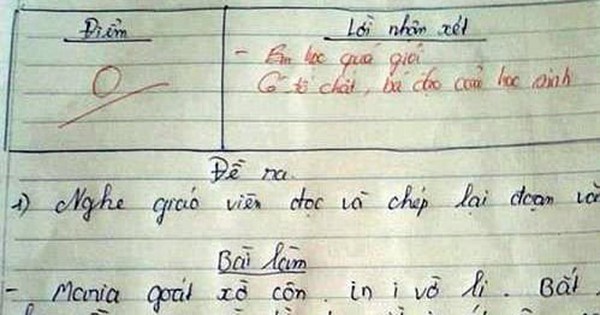 Điểm
Lời nhân xét
0
- Em học quá giỏi
Có tố chất, bá đạo của học sinh
Đề ra.
1) Nghe giáo viên đọc và chép lại đoạn vă
Bài làm
- Mania goát xờ côn. in i vờ li. Bất